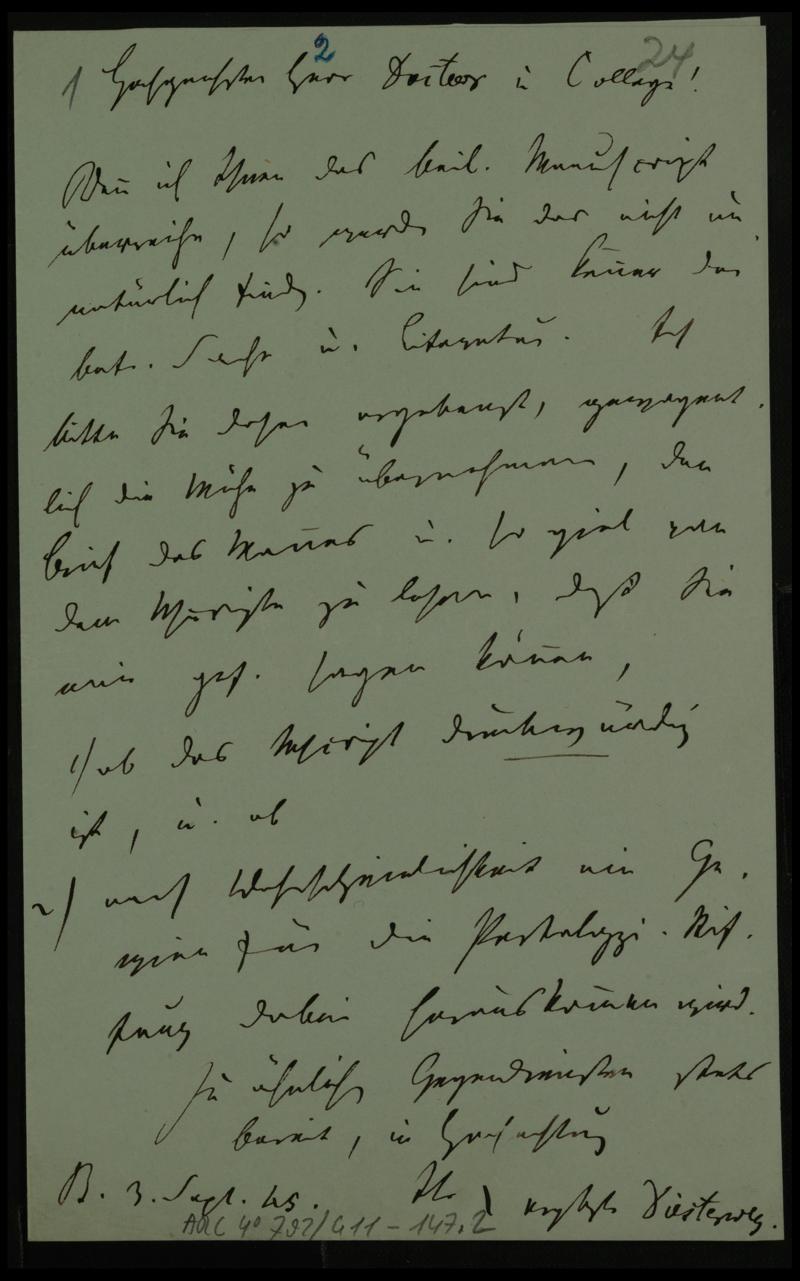 2
24
1 Hochgeehrter Herr Doctor u College!
Wenn ich Ihnen das beil. Manuscript
überreiche, so werden Sie das nicht un
natürlich finden. Sie sind Kenner der
bot. Sache u. Literatur. Ich
bitte Sie daher ergebenst,
lich die Mühe zu übernehmen, den
Brief des Mannes u. so viel von
dem Mscripte zu lesen, daß Sie
mir gef. sagen können,
1) ob das Mscript druckwürdig
ist, u. ob
2) nach Wahrscheinlichkeit ein Ge-
winn für die Pestalozzi-Stif-
tung dabei herauskommen wird.
Zu ähnlichen Gegendiensten stets
bereit, in Hochachtung
B. 3. Sept. 45. Ihr ergbste Diesterweg.
ARC 4° 792/G11-147.2